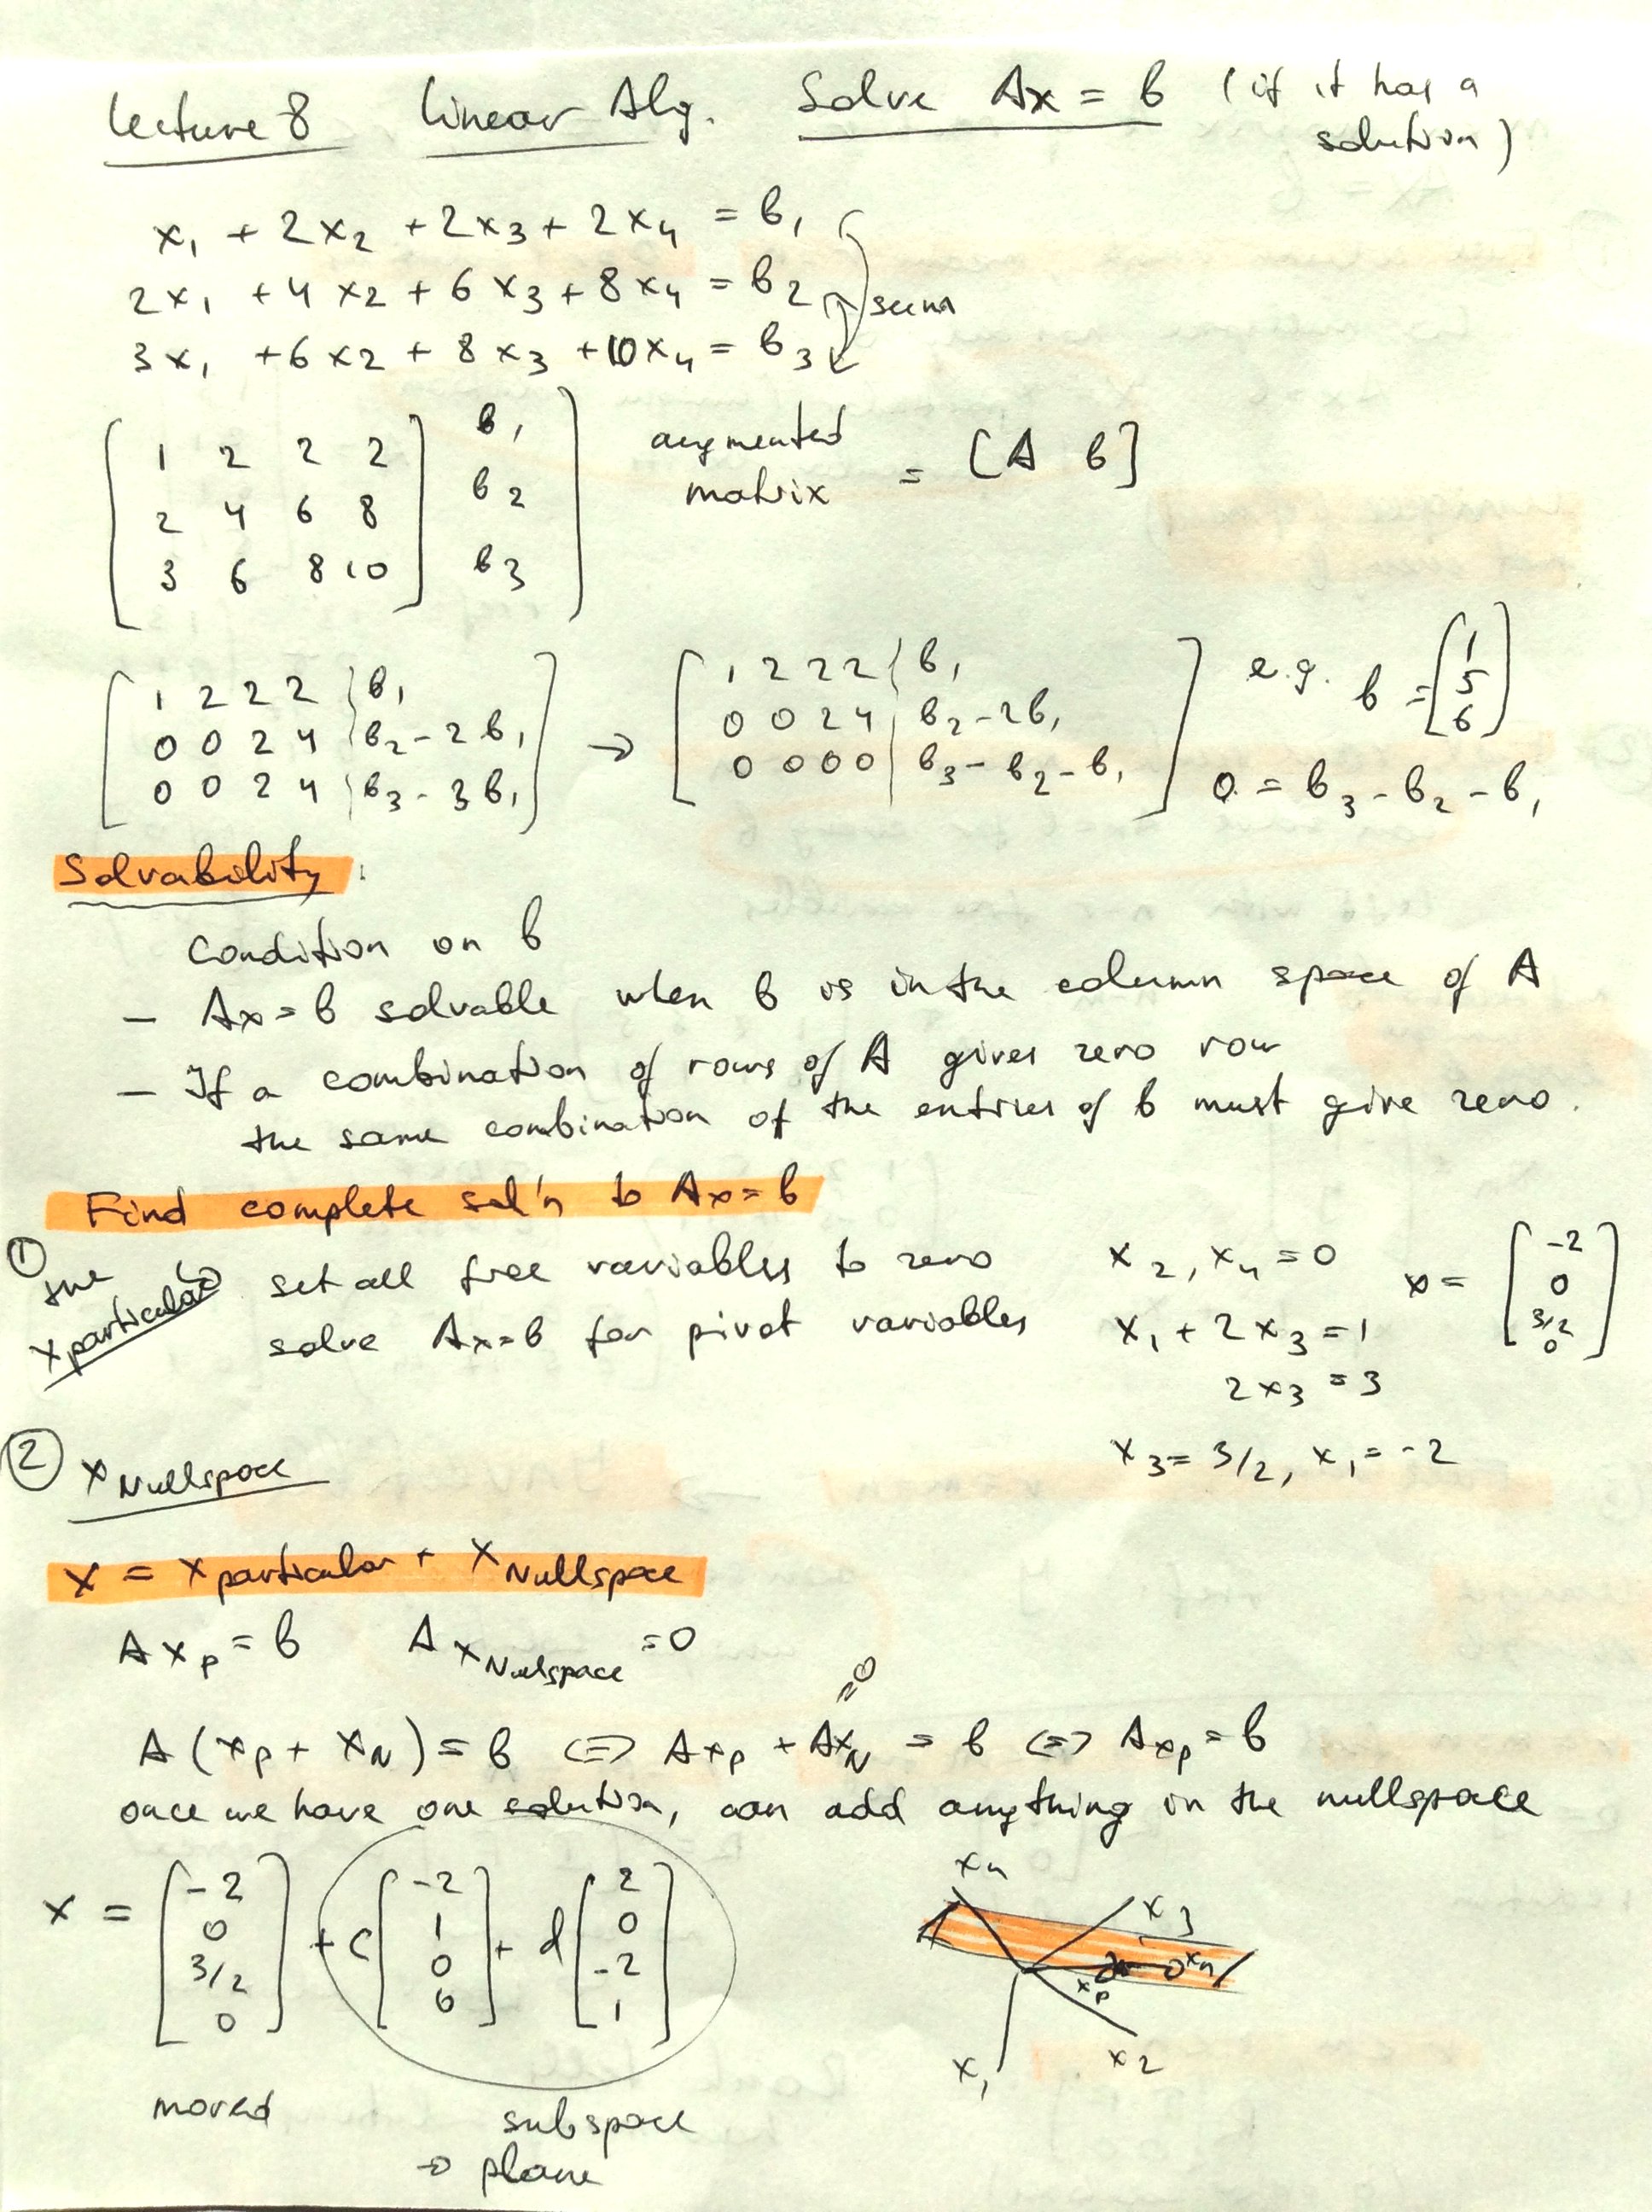 Lecture 8 Linear Alg. Solve Ax = b (if it has a solution)
x₁ + 2x₂ + 2x₃ + 2x₄ = b₁
2x₁ + 4x₂ + 6x₃ + 8x₄ = b₂
3x₁ + 6x₂ + 8x₃ + 10x₄ = b₃
[ 1 2 2 2 ] b₁ ]
[ 2 4 6 8 ] b₂ ] augmented matrix = [A b]
[ 3 6 8 10 ] b₃ ]
[ 1 2 2 2 | b₁ ] → [ 1 2 2 2 | b₁ ] e.g. b = [1 5 6]
[ 0 0 2 4 | b₂ - 2b₁ ] [ 0 0 2 4 | b₂ - 2b₁ ]
[ 0 0 2 4 | b₃ - 3b₁ ] [ 0 0 0 0 | b₃ - b₂ - b₁ ] 0 = b₃ - b₂ - b₁
Solvability:
Condition on b
- Ax = b solvable when b is in the column space of A
- If a combination of rows of A gives zero row
the same combination of the entries of b must give zero.
Find complete sol'n to Ax = b
① the x particular → set all free variables to zero
solve Ax = b for pivot variables
x₂, x₄ = 0
x₁ + 2x₃ = 1
2x₃ = 3
x₃ = 3/2, x₁ = -2
x = [-2 0 3/2 0]
② x Nullspace
x = x particular + x Nullspace
Axₚ = b Ax Nullspace = 0
A(xₚ + x_N) = b ⇔ Axₚ + Ax_N = b ⇔ Axₚ = b
=0
once we have one solution, can add anything in the nullspace
x = [-2 0 3/2 0] + c[-2 1 0 0] + d[2 0 -2 1]
moved
subspace
→ plane
x₄
x₃
xₚ
xₙ
x₁
x₂